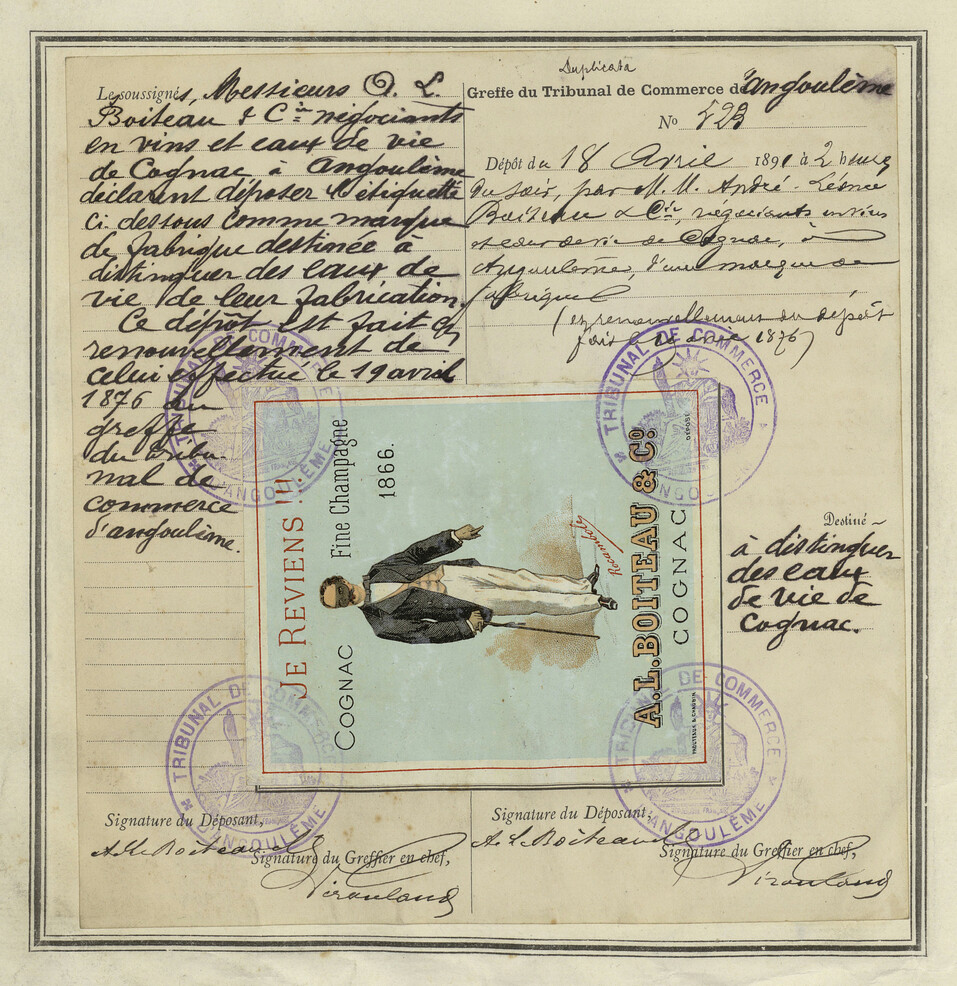 Le soussignés, Messieurs A. L.
Boiteau & Cie négociants
en vins et eaux de vie
de Cognac à Angoulême
déclarent déposer l'étiquette
ci dessous comme marque
de fabrique destinée à
distinguer des eaux de
vie de leur fabrication.
Ce dépôt est fait en
renouvellement de
celui effectué le 19 avril
1876 au
greffe
du tribu-
nal de
commerce
d'angoulême.
Duplicata
Greffe du Tribunal de Commerce d'angoulême
No 523
Dépôt du 18 Avril 1891 à 2 heures
du soir, par M. M. André-Léonce
Boiteau & Cie, négociants en vins
et eaux de vie de Cognac, à
Angoulême, d'une marque de
fabrique
(en renouvellement du dépôt
fait le 1876)
JE REVIENS!!!
COGNAC Fine Champagne
1866.
Rocambole
A.L. BOITEAU & Co.
COGNAC
DÉPOSÉ
Destiné
à distinguer
des eaux
de vie de
Cognac.
TRIBUNAL DE COMMERCE
D'ANGOULÊME
TRIBUNAL DE COMMERCE
D'ANGOULÊME
TRIBUNAL DE COMMERCE
D'ANGOULÊME
TRIBUNAL DE COMMERCE
D'ANGOULÊME
Signature du Déposant,
A. L. Boiteau
Signature du Greffier en chef,
Signature du Déposant,
A. L. Boiteau
Signature du Greffier en chef,